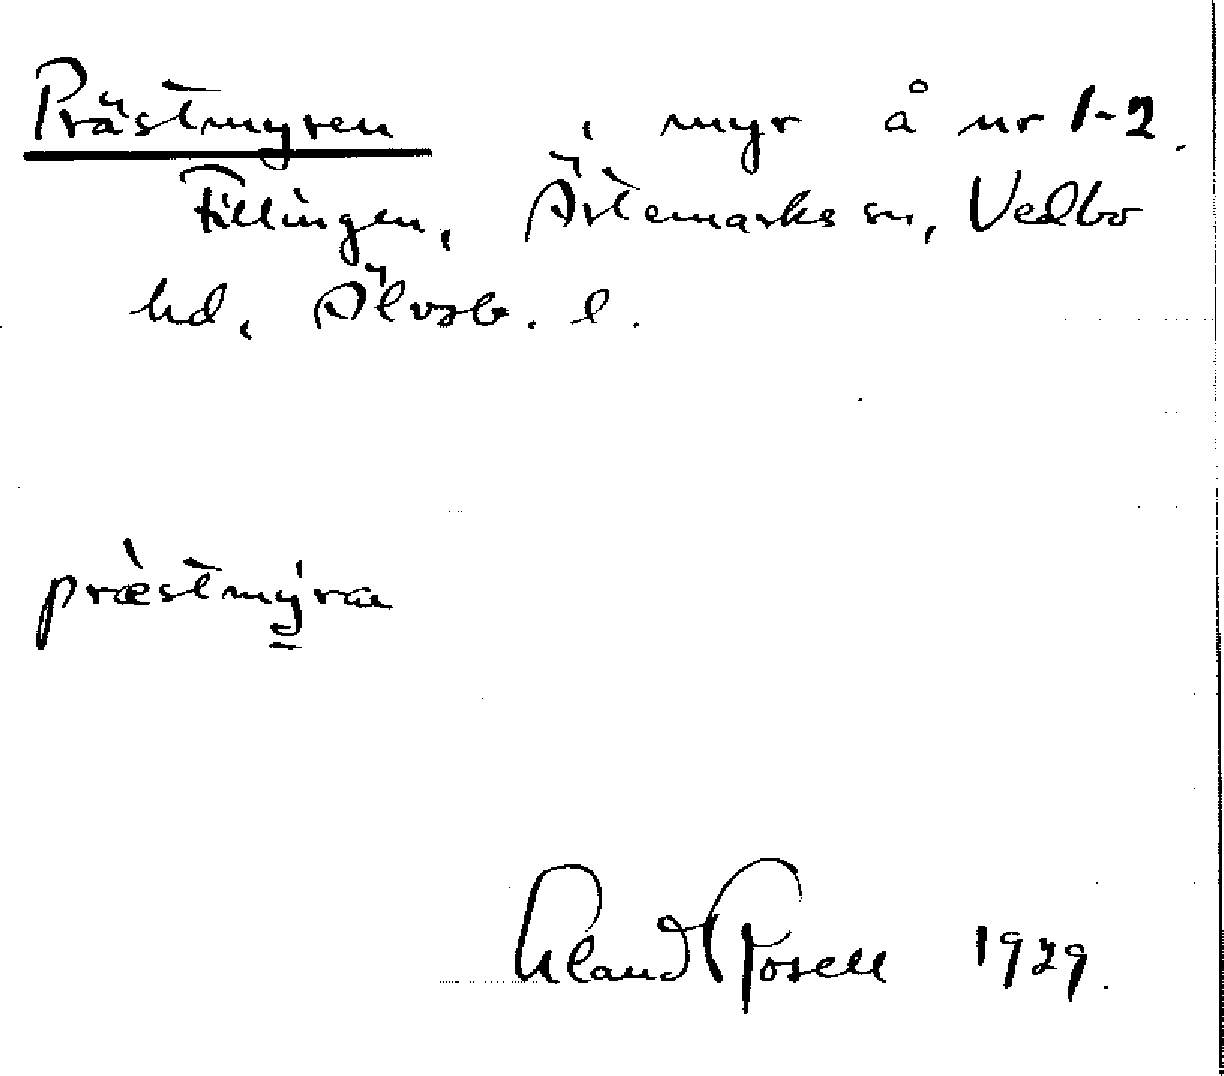 Prästmyren , myr å nr 1-2.
Fillingen, Ärtemarks sn, Vedbo
hd, Älvsb. l.
præ̀stmý̲ræ
Erland Rosell 1929.